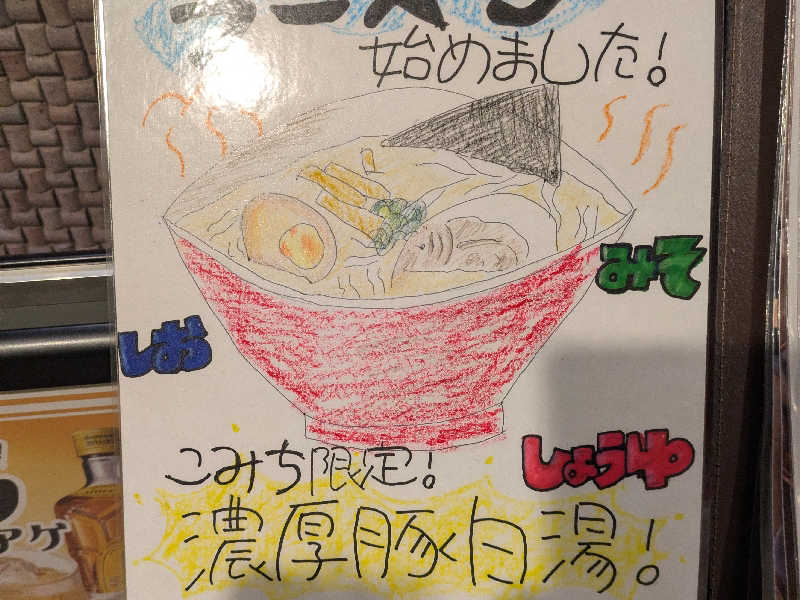 始めました!
みそ
しお
しょうゆ
こみち限定!
濃厚豚白湯!
アゲ